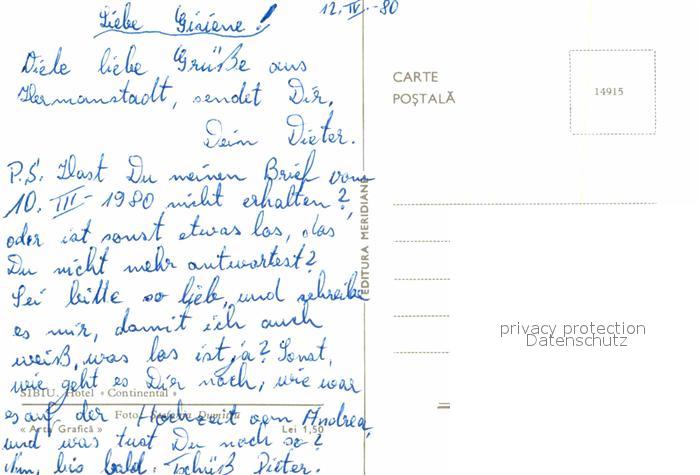 12. IV. -80
Liebe Gisiene!
Viele liebe Grüße aus
Hermanstadt, sendet Dir,
Dein Dieter.
P.S. Hast Du meinen Brief vom
10. III - 1980 nicht erhalten?,
oder ist sonst etwas los, das
Du nicht mehr antwortest?
Sei bitte so lieb, und schreibe
es mir, damit ich auch
weiß, was los ist ja? Sonst,
wie geht es Dir noch, wie war
es auf der Hochzeit vom Andrea,
und was tust Du noch so?
bis bald. Tschüß Dieter.
SIBIU. Hotel « Continental »
Foto: Dumitru
« Arta Grafică » Lei 1,50
EDITURA MERIDIANE
CARTE
POȘTALĂ
14915
privacy protection
Datenschutz